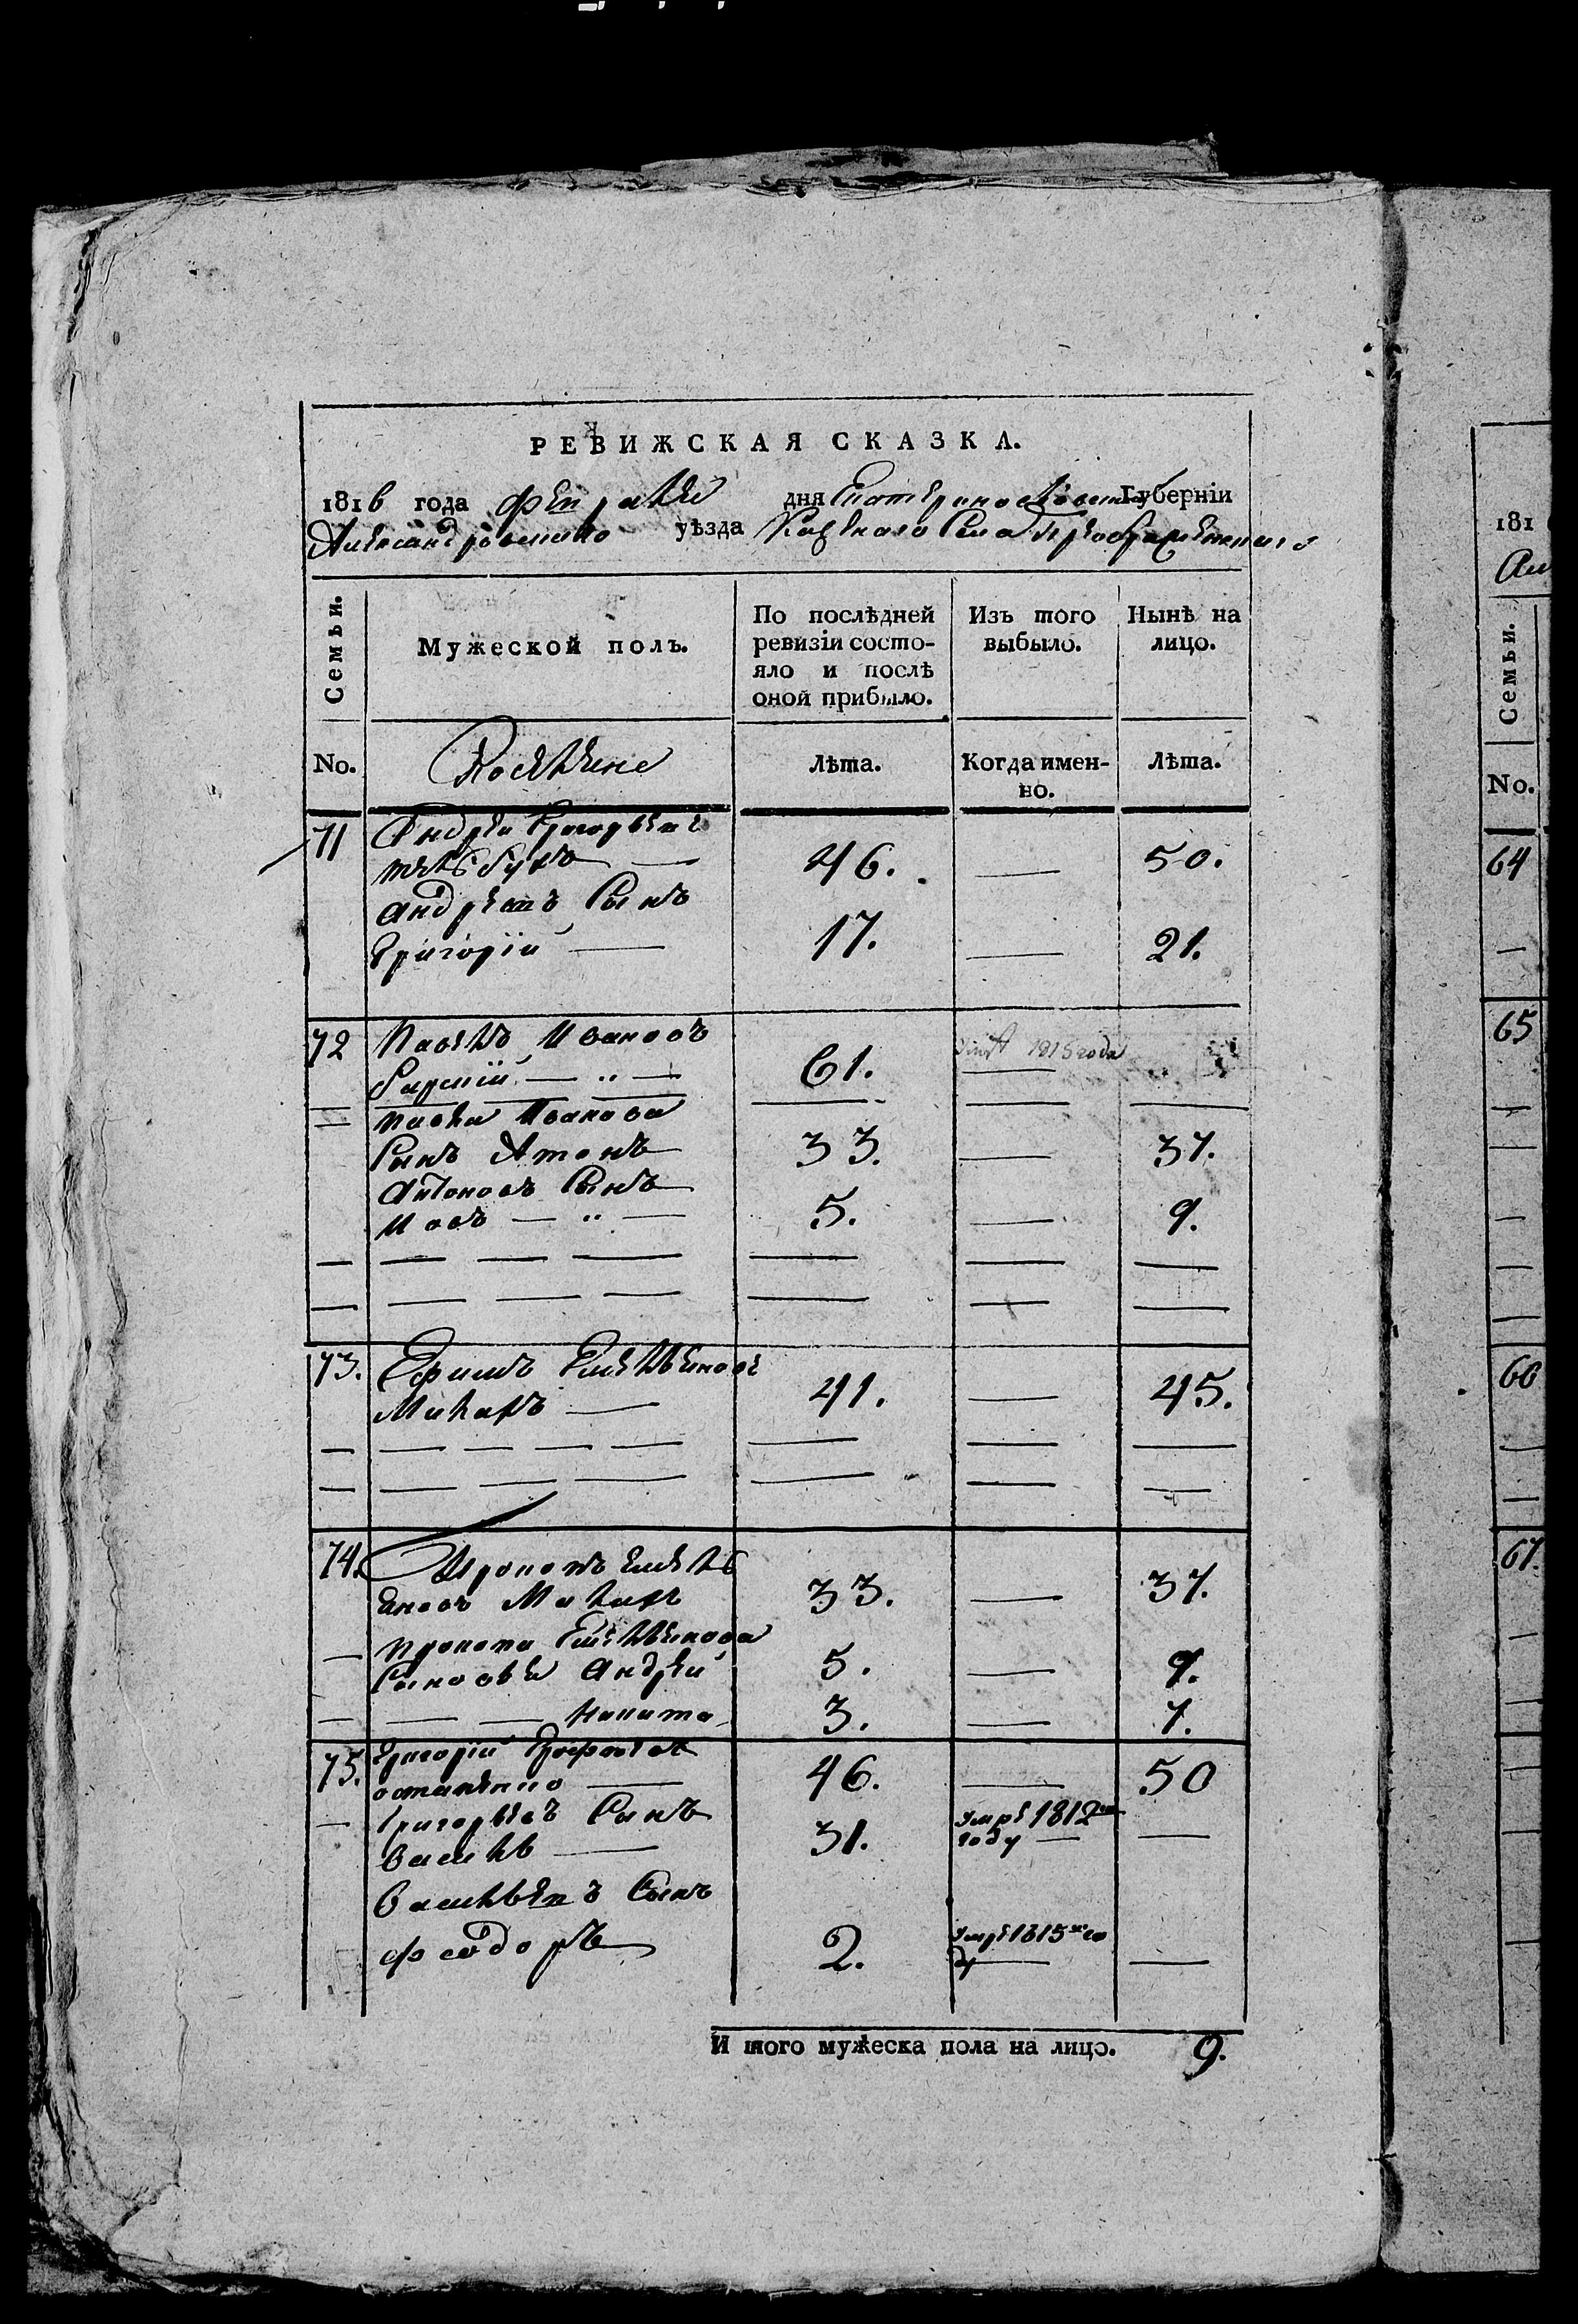 РЕВИЖСКАЯ СКАЗКА.
1816 года февраля дня Екатеринославской Губерніи
Александровскаго уѣзда Казенаго Села Преображенскаго
Семьи.
Мужеской полъ.
По послѣдней ревизіи состо-
яло и послѣ
оной прибыло.
Изъ того
выбыло.
Нынѣ на
лицо.
No.
Лѣта.
Когда имен-
но.
Лѣта.
71 Андрей Григорьевъ
46. — 50.
Андреевъ Сынъ
Григорій — 17. — 21.
72 Павелъ Ивановъ
61. 1815 года
Павла Иванова
Сынъ Антонъ 33. — 37.
Антоновъ Сынъ
Иовъ — " — 5. — 9.
73. Ефимъ Емельяновъ
Махиръ — 41. — 45.
74. Прокопъ Емель
яновъ Махиръ 33. — 37.
Прокопа Емельянова
Сыновья Андрей 5. — 9.
Никита 3. — 7.
75. Григорій
Остапенко — 46. — 50
Григорьевъ Сынъ
Василь — 31. умре 1812 году — —
Васильевъ Сынъ
Федоръ 2. умре 1815 го
ду —
И того мужеска пола на лицо. 9.
181
Ал
Семьи.
No.
64
65
66
67.